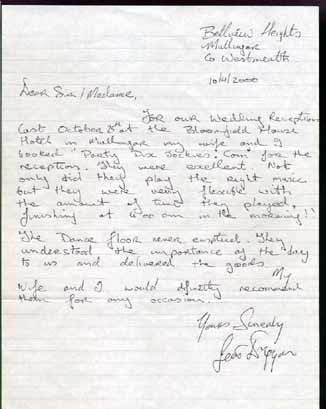 Bellview Heights
Mullingar
Co Westmeath
10/4/2000
Dear Sir/Madame,
For our Wedding Reception
Last October 8th at the Bloomfield House
Hotel in Mullingar my wife and I
booked "Party Dix Jockies. Com" for the
reception. They were excellent. Not
only did they play the right music
but they were very flexible with
the amount of time they played,
finishing at 4.00 am in the morning!!
The Dance floor never emptied. They
understood the importance of the day
to us and delivered the goods.
My
wife and I would definitely recommend
them for any occasion.
Yours Sincerely